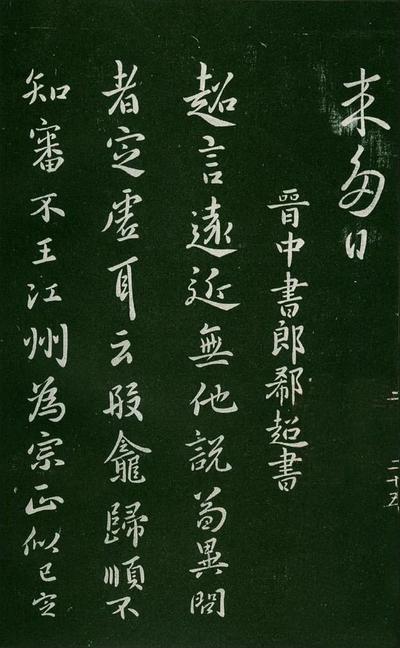 来多日
晉中書郎郗超書
超言遠近無他說前異問
者定虛耳云殷龕歸順不
知審不王江州為宗正似已定
二 二十五